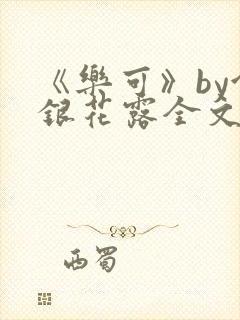 《樂可》by
銀花露全文
西蜀